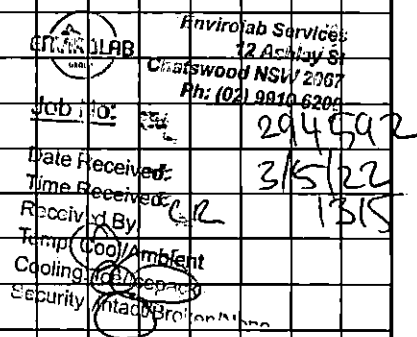 ENVIROLAB
GROUP
Envirolab Services
12 Ashley St
Chatswood NSW 2067
Ph: (02) 9910 6200
Job No: 294592
Date Received: 3/5/22
Time Received: 1315
Received By:
Temp: Cool/Ambient
Cooling: Ice/Icepack
Security: Intact/Broken/None